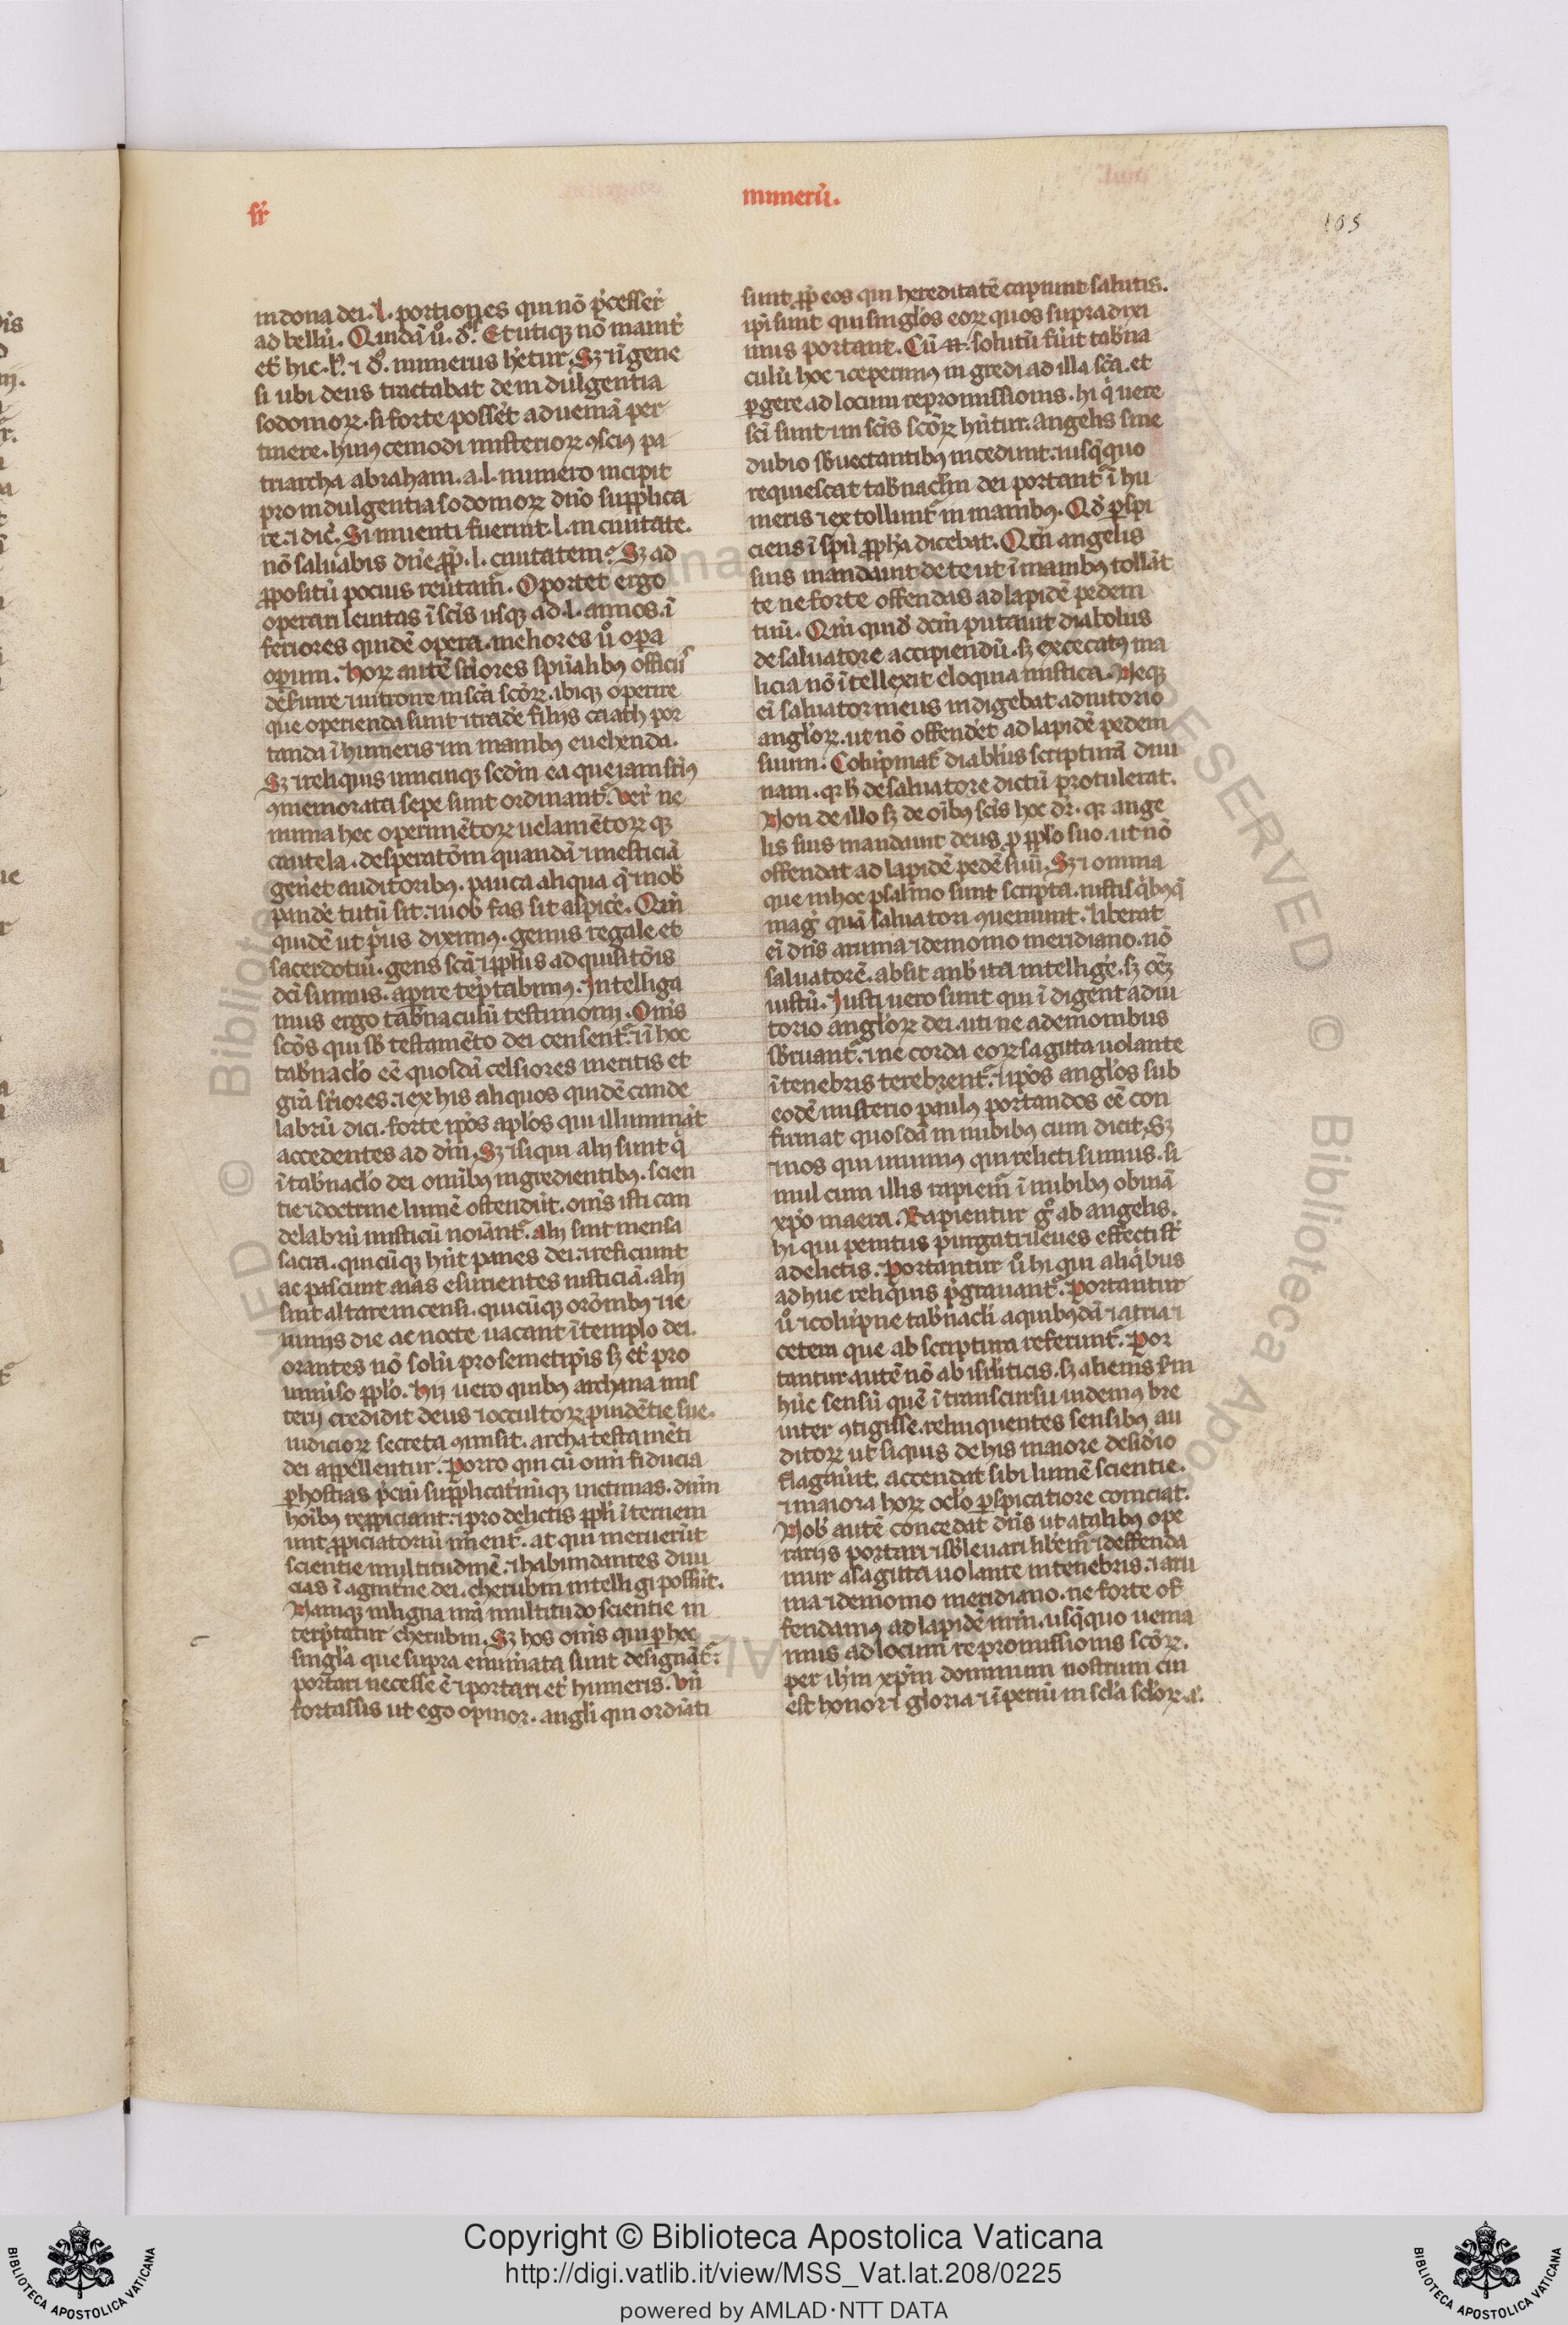 sr̄
numerū.
105
in dona dei. l. portiones qui nō p̄cesser̄t
ad bellū. Quidā ū. d. Et utiqꝫ nō mainꝰ
et̄ hic. l. ⁊ d. numerus h̄etur. Sꝫ ⁊ ī gene
si ubi deus tractabat de indulgentia
sodomoꝝ. si forte posset aduenā per
tinere. huiꝯcemodi misterioꝝ ꝯsciꝯ pa
triarcha abraham. a. l. numero incipit
pro indulgentia sodomoꝝ dn̄o supplica
re. ⁊ dic̄. Si inuenti fuerint. l. in ciuitate.
nō saluabis dn̄e ꝓp̄. l. ciuitatem. Sꝫ ad
ꝓpositū pocius reūtam̄. Oportet ergo
operari leuitas ī scīs usqꝫ ad. l. annos. ī
feriores quidē opera. meliores ū opa
opum. hoꝝ autē sr̄iores spūalibꝯ officijs
defunre ⁊ introire in scā scōꝝ. ibiqꝫ operire
que operienda sunt ⁊ trade filijs caath por
tanda ī humeris ⁊ in manibꝯ euehenda.
Sꝫ ⁊ reliquis unicuiqꝫ scdm̄ ea que iam sr̄iꝯ
ꝯmemorata sepe sunt ordinant̄. Ver̄ ne
nimia hec operimētoꝝ uelamētoꝝ qꝫ
cautela. desperatōm quandā ⁊ mesticiā
gen̄et auditoribus. pauca aliqua q̄ ⁊ nob̄
pande tutū sit. ⁊ uob̄ fas sit aspice. Qm̄
quidē ut p̄us diximꝯ. genus regale et
sacerdotiū. gens scā ⁊ ppl̄us adquisitōis
dc̄i sumus. aperire teptabimꝯ. Intelliga
mus ergo tab̄naculū testimonij. Om̄s
scōs qui sb̄ testamēto dei censent̄. ⁊ ī hoc
tab̄naclo eē quosdā celsiores meritis et
gr̄a sr̄iores. ⁊ ex his aliquos quidē cande
labrū dici. forte ip̄os ap̄los qui illuminat
accedentes ad dm̄. Sꝫ ⁊ siqui alij sunt q̄
ī tab̄naclo dei om̄ibꝯ ingredientibꝯ. scien
tie ⁊ doctrine lumē ostendūt. om̄s isti can
delabrū misticū noīant̄. Alij sint mensa
sacra. quicūqꝫ hn̄t panes dei. ⁊ reficiunt
ac pascunt aīas esurientes iusticiā. alij
sint altare incensi. quicūqꝫ orōnibꝯ ⁊ ie
iunijs die ac nocte uacant ī templo dei.
orantes nō solū pro semetip̄is sꝫ et̄ pro
uniūso pplo. Hij uero quibꝯ archana mis
terij credidit deus ⁊ occultoꝝ puidētie sue.
iudicioꝝ secreta ꝯmisit. archa testamēti
dei appellentur. Porro qui cū om̄i fiducia
ꝑ hostias p̄cū supplicat̄nūqꝫ uictimas. dn̄m
hoībus reppiciant. ⁊ pro delictis ppli īterueni
unt ꝓpiciatoriū nūent̄. at qui meruerūt
scientie multitudinē. ⁊ habundantes diui
cias ī agnitiōne dei. cherubin intelligi possūt.
Namqꝫ in ligna nr̄a multitudo scientie in
terp̄tatur cherubin. Sꝫ hos om̄s qui ꝑ hec
singla que supra enumīata sunt designāt̄.
portari necesse ē ⁊ portari et̄ humeris. Vn̄
fortassis ut ego opinor. angli qui ordīati
sunt ꝓp̄ eos qui hereditatē capiunt salutis.
ip̄i sunt qui singlos eoꝝ quos supra dixi
mus portant. Cū n. solutū fūit tab̄na
culū hoc ⁊ ceperimꝯ ingredi ad illa scā. et
ꝑgere ad locum repromissionis. hi q̄ uere
scī sunt ⁊ in scīs scōꝝ hn̄tur. angelis sine
dubio sb̄uectantibꝯ incedunt. ⁊ usq̄quo
requiescat tab̄nacl̄m dei portant̄ ī hu
meris ⁊ extollunt̄ in manibꝯ. Qd̄ ꝑspi
ciens ī spū ꝓph̄a dicebat. Qm̄ angelis
suis mandauit de te ut ī manibꝯ tollāt
te ne forte offendas ad lapidē pedem
tuū. Qm̄ quid dem putauit diabolus
de saluatore accipiendū. sꝫ excecatꝯ ma
licia nō ītellexit eloquia mistica. Neqꝫ
ei saluator meus indigebat adiutorio
angloꝝ. ut nō offendet ad lapidē pedem
suum. Cohipmat̄ diablus scripturā diui
nam. qꝛ h̄ de saluatore dictū protulerat.
Non de illo sꝫ de oībꝯ scīs hoc dr̄. qꝛ ange
lis suis mandauit deus ꝓ pplo suo. ut nō
offendat ad lapidē pedē suū. Sꝫ ⁊ omnia
que in hoc psalmo sunt scripta. iustis q̄bꝯq̄
maḡ quā saluatori ꝯueniunt. Liberat
ei dn̄s a ruina ⁊ demonio meridiano. nō
saluatorē. absit a nb̄ ita intellige. sꝫ oēꝫ
iustū. Justi uero sunt qui īdigent adiu
torio angloꝝ dei. uti ne a demonibus
sb̄ruant̄. ⁊ ne corda eoꝝ sagitta uolante
ī tenebris terebrent̄. ⁊ ip̄os anglos sub
eodē misterio paulꝯ portandos eē con
firmat quosdā in nubibꝯ cum dicit. Sꝫ
⁊ nos qui uiuimꝯ qui relicti sumus. si
mul cum illis rapiem̄ ī nubibꝯ obuiā
xp̄o in aera. Rapientur ḡ ab angelis.
hi qui penitus purgati ⁊ leues effecti st̄
a delictis. Portantur ū hi qui aliq̄bus
adhuc reliquis p̄grauant̄. Portantur
ū ⁊ colupne tab̄nacli a quibꝯdā ⁊ atria ⁊
cetera que ab scriptura referunt̄. Por
tantur autē nō ab isrl̄iticis. sꝫ alienis sm̄
hūc sensū quē ī transcursu uidemꝯ bre
uiter ꝯtigisse. relinquentes sensibꝯ au
ditoꝝ ut siquis de his maiore desid̄io
flagauit. accendat sibi lumē scientie.
⁊ maiora hoꝝ oclo ꝑspicatiore coniciat.
Nob̄ autē concedat dn̄s ut a talibꝯ ope
rarijs portari ⁊ sb̄leuari lib̄em̄ ⁊ deffenda
mur a sagitta uolante in tenebris. ⁊ a rui
na ⁊ demonio meridiano. ne forte of
fendamꝯ ad lapidē nr̄m. usq̄quo uenia
mus ad locum repromissionis scōꝝ.
per ih̄m xp̄m dominum nostrum cui
est honor ⁊ gloria ⁊ īperiū in scl̄a scl̄oꝝ. a.
Copyright © Biblioteca Apostolica Vaticana
http://digi.vatlib.it/view/MSS_Vat.lat.208/0225
powered by AMLAD·NTT DATA
BIBLIOTECA APOSTOLICA VATICANA
BIBLIOTECA APOSTOLICA VATICANA